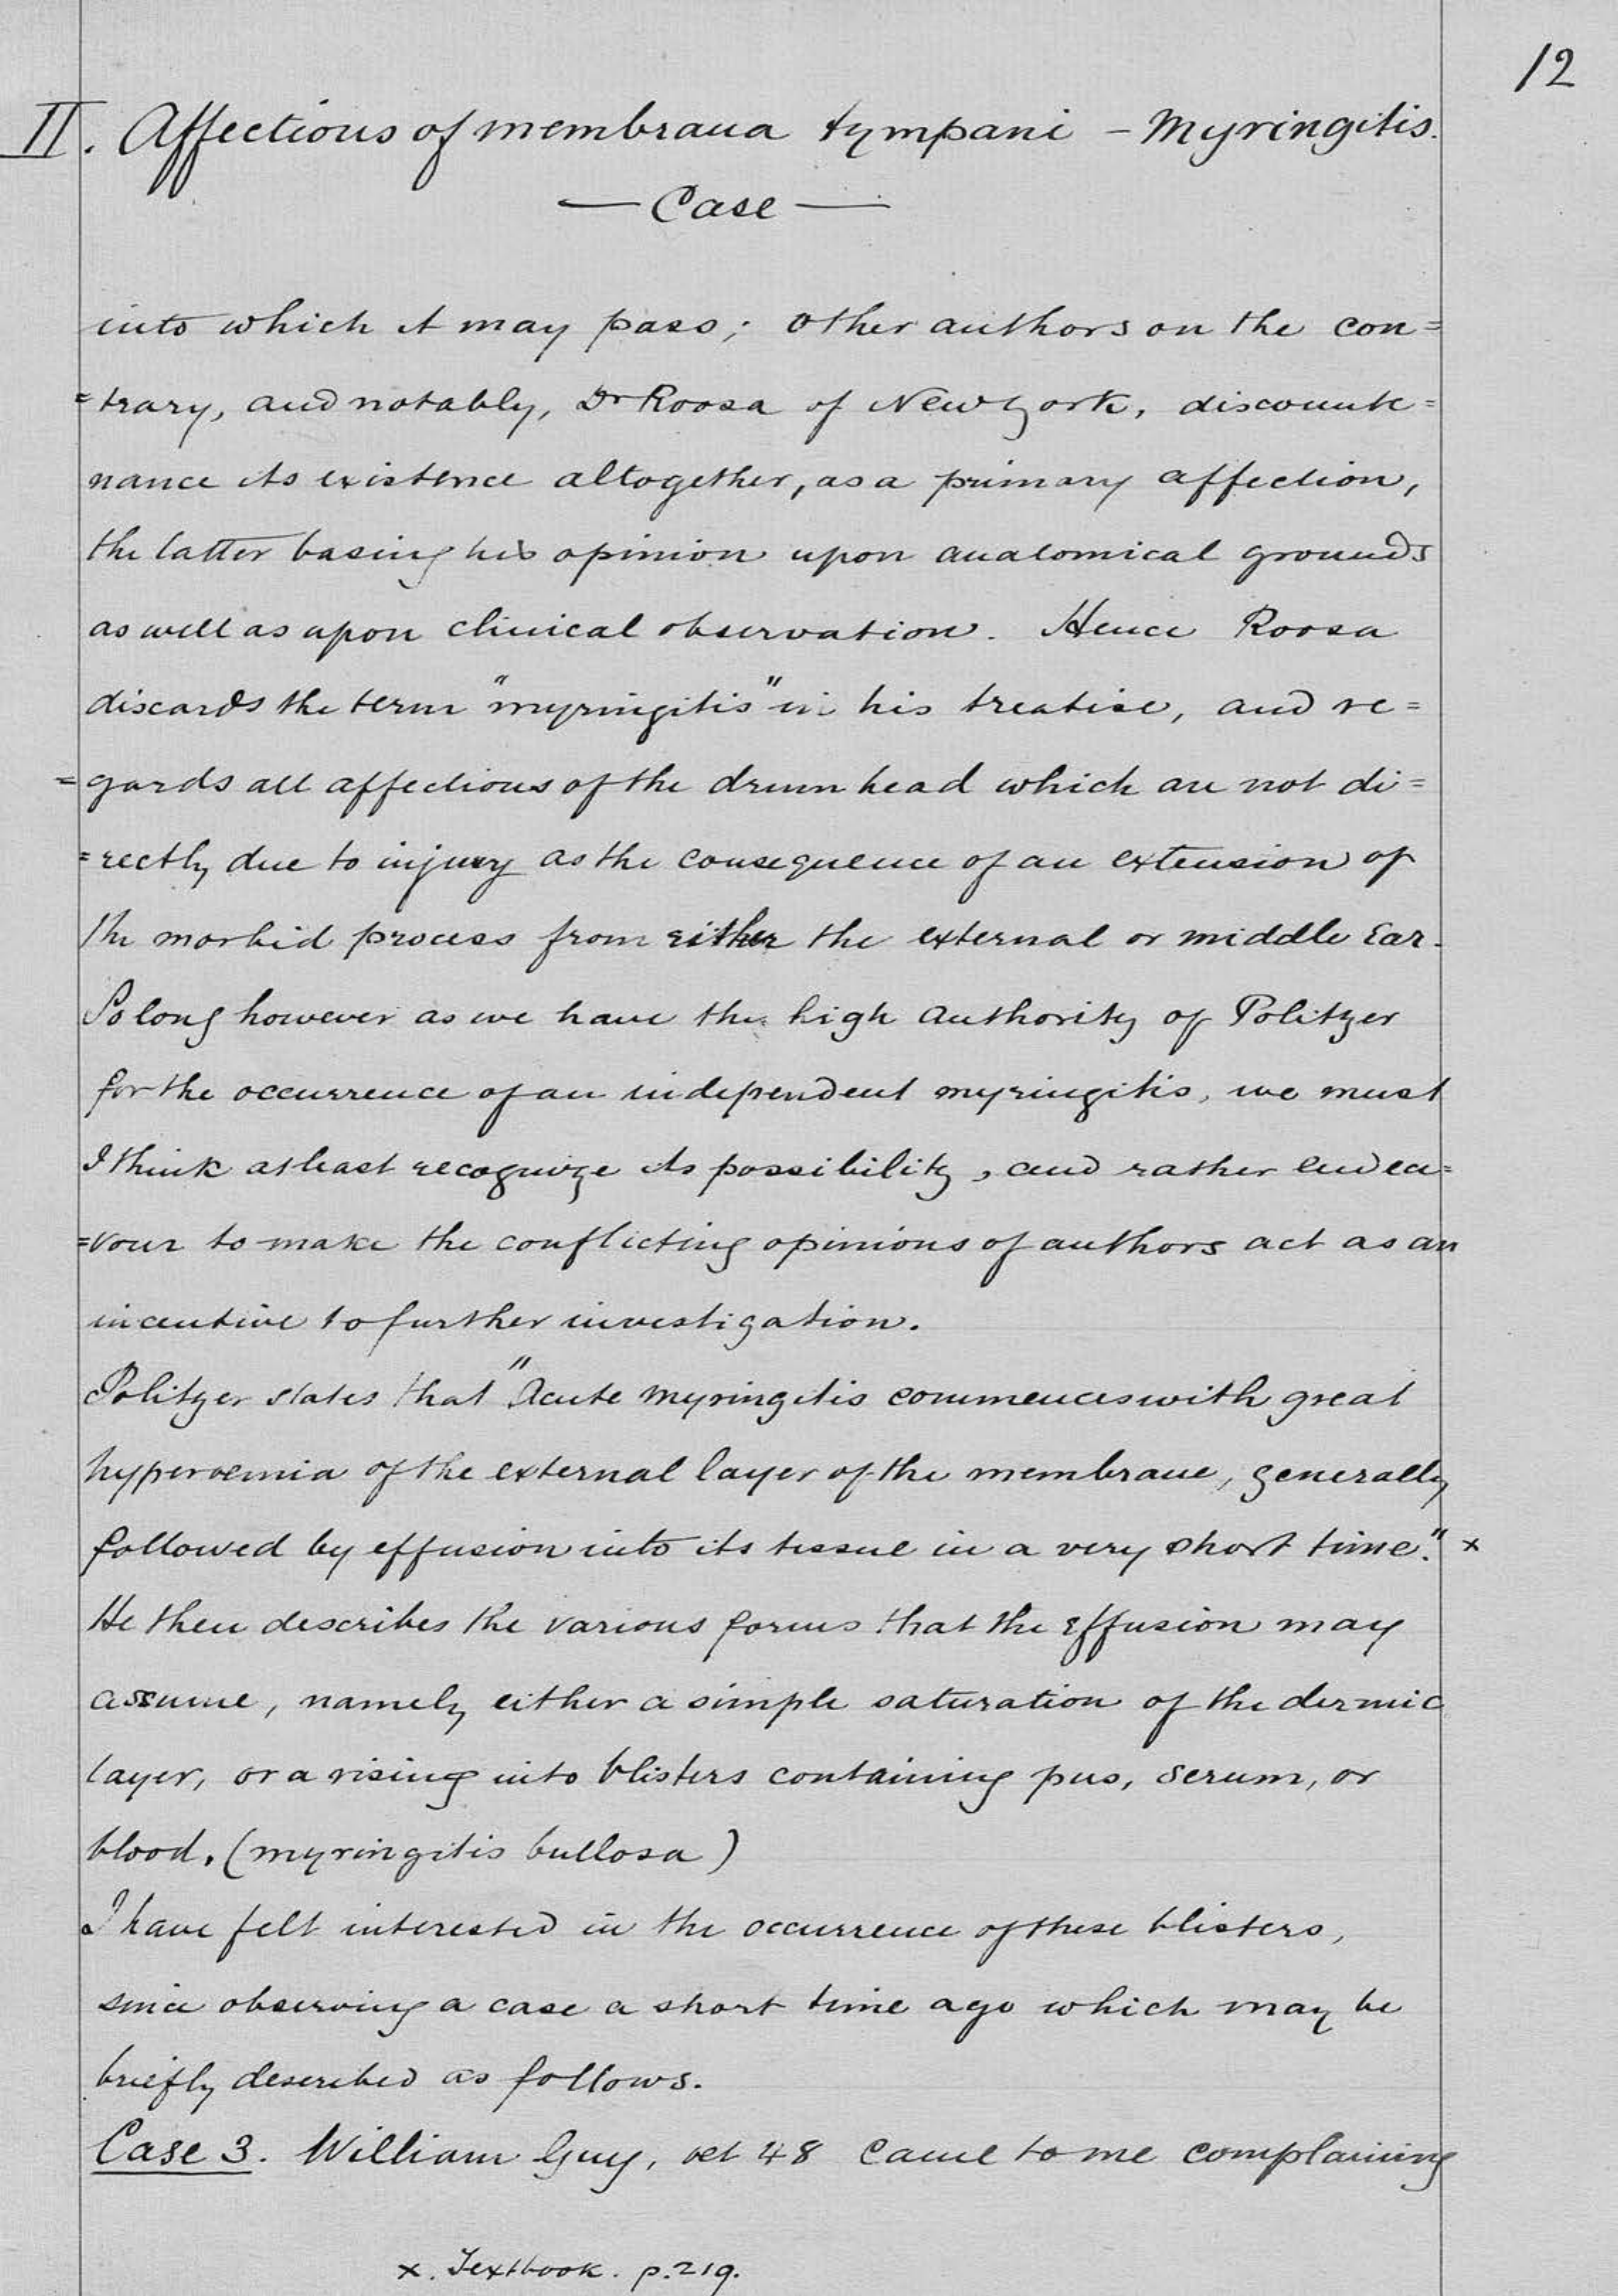 12
II. Affections of membrana tympani – Myringitis.
— Case —
into which it may pass; other authors on the con=
=trary, and notably, Dr Roosa of New York, discounte=
nance its existence altogether, as a primary affection,
the latter basing his opinion upon anatomical grounds
as well as upon clinical observation. Hence Roosa
discards the term "myringitis" in his treatise, and re=
=gards all affections of the drum head which are not di=
=rectly due to injury as the consequence of an extension of
the morbid process from either the external or middle Ear.
So long however as we have the high authority of Politzer
for the occurrence of an independent myringitis, we must
I think at least recognize its possibility, and rather endea=
=vour to make the conflicting opinions of authors act as an
incentive to further investigation.
Politzer states that "Acute myringitis commences with great
hyperoemia of the external layer of the membrane, generally
followed by effusion into its tissue in a very short time." x
He then describes the various forms that the effusion may
assume, namely either a simple saturation of the dermic
layer, or a rising into blisters containing pus, serum, or
blood. (myringitis bullosa)
I have felt interested in the occurrence of these blisters,
since observing a case a short time ago which may be
briefly described as follows.
Case 3. William Guy, oet 48 came to me complaining
x. Textbook. p. 219.